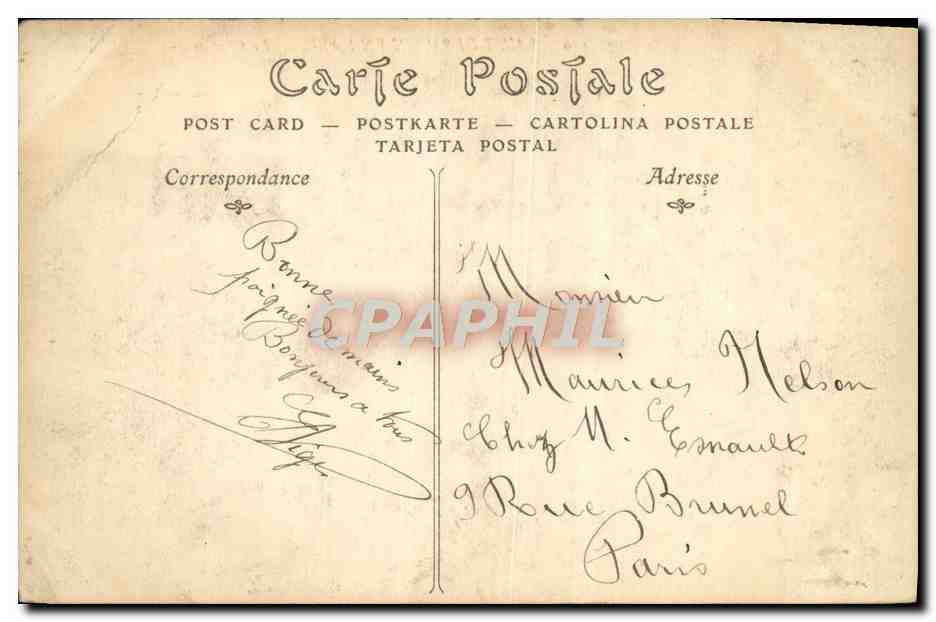 Carte Postale
POST CARD — POSTKARTE — CARTOLINA POSTALE
TARJETA POSTAL
Correspondance
Bonne
poignée de mains
Bonjours a tous
Adresse
Monsieur
Maurices Nelson
Chez M. Esnault
9 Rue Brunel
Paris
CPAPHIL